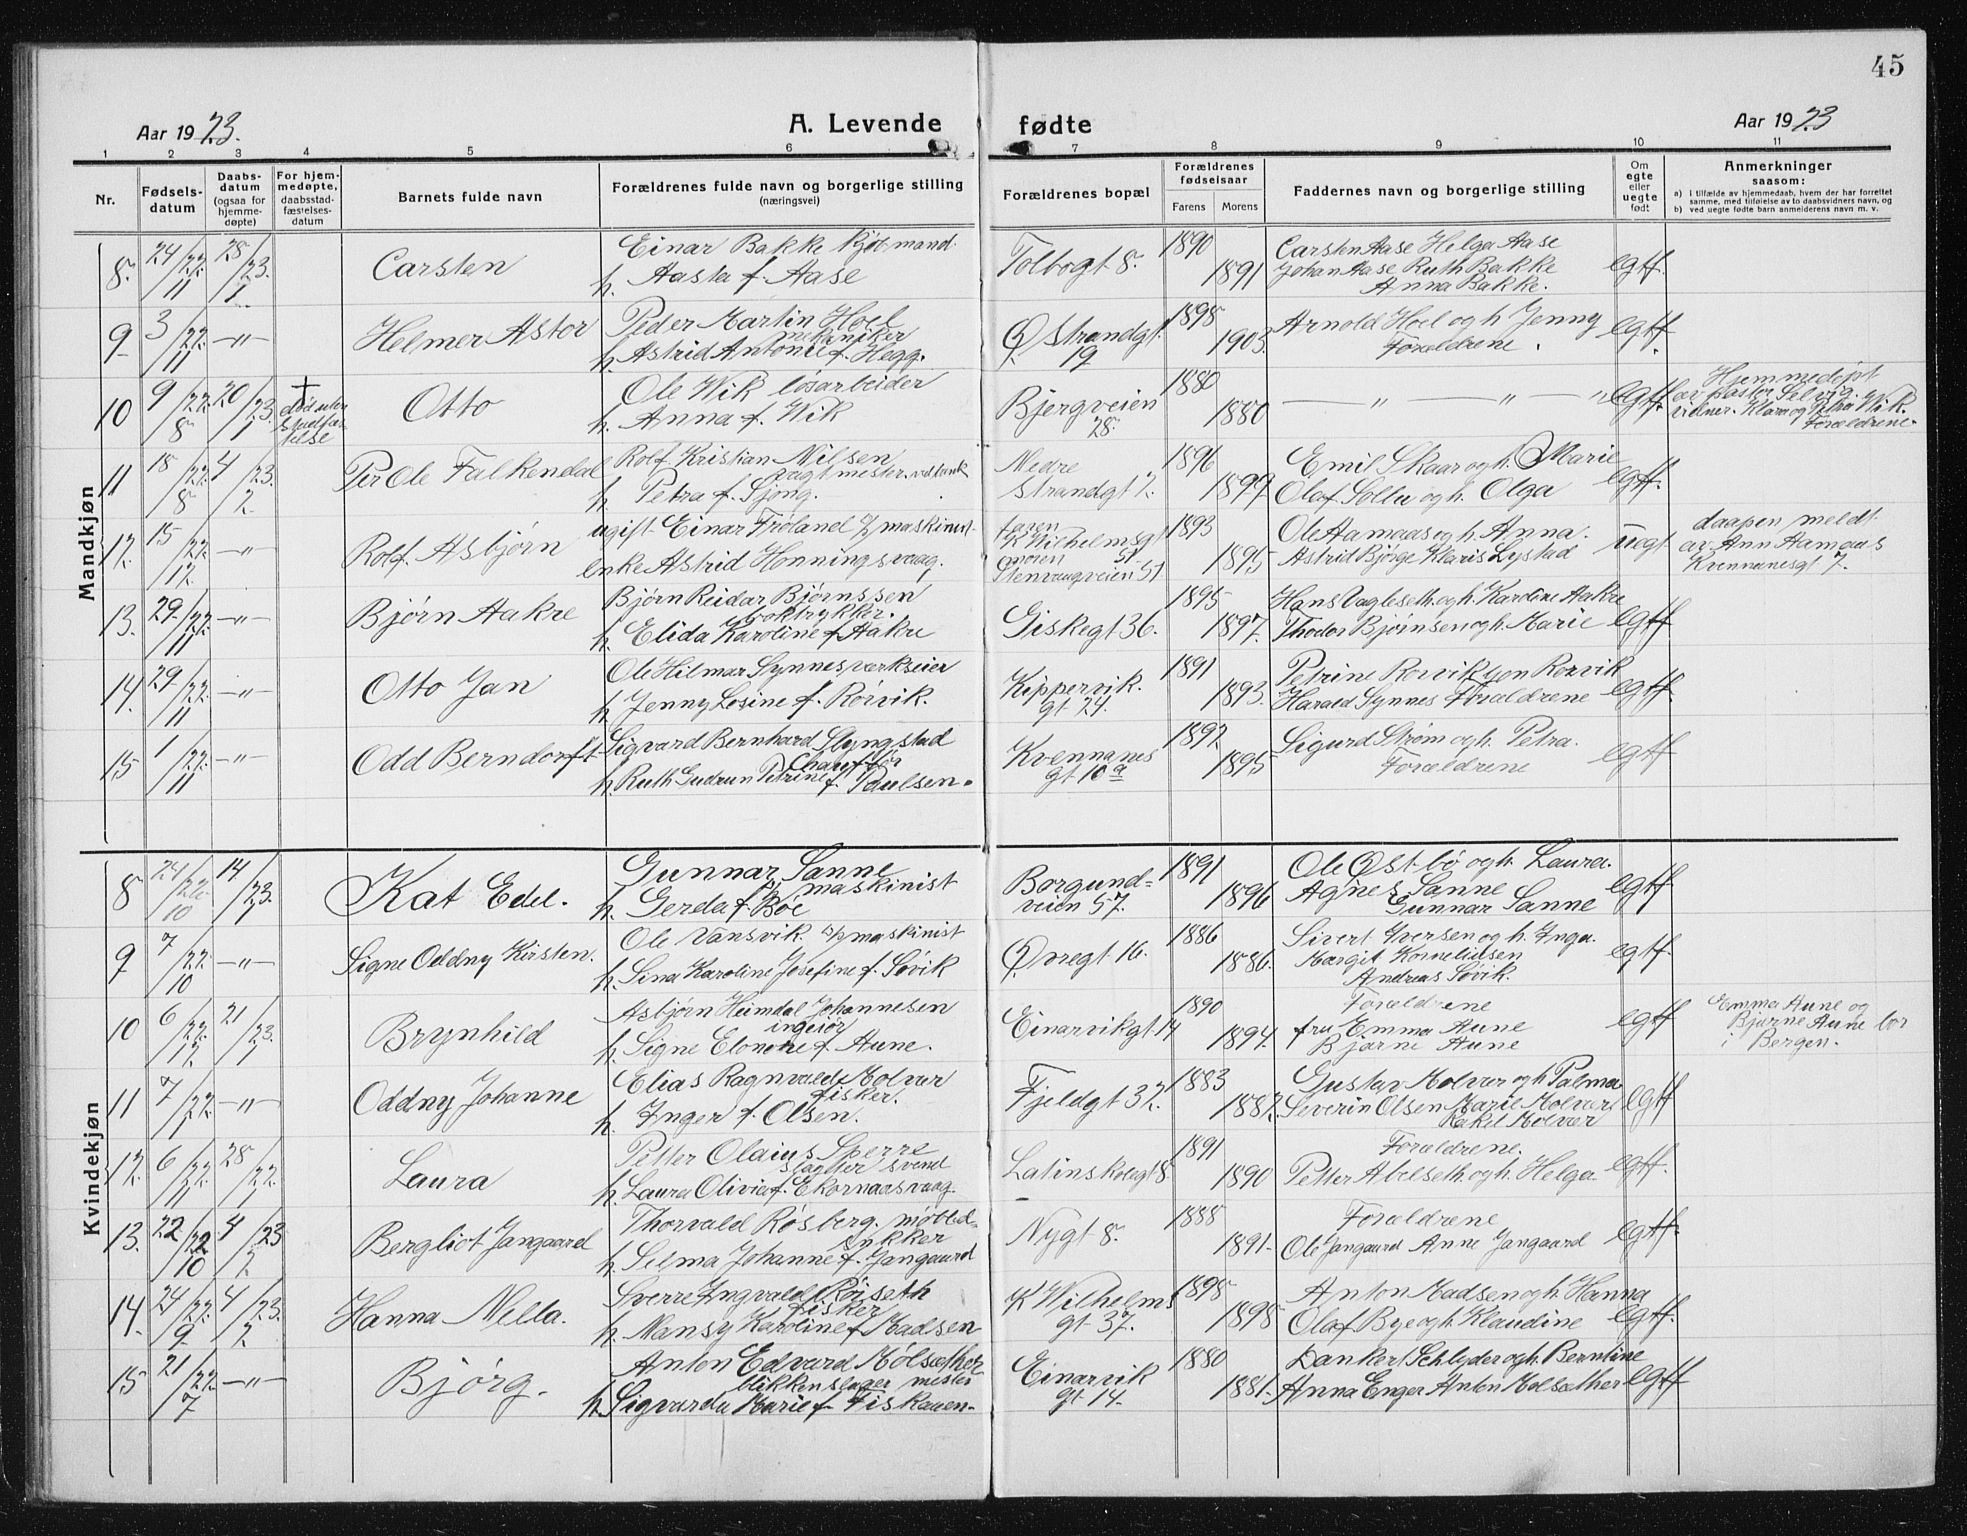 45
Aar 1923.
A. Levende fødte
Aar 1923
1 2 3 4 5 6 7 8 9 10 11
Nr.
Fødsels-
datum
Daabs-
datum
(ogsaa for
hjemme-
døpte)
For hjem-
medøpte,
daabsstad-
fæstelses-
datum
Barnets fulde navn
Forældrenes fulde navn og borgerlige stilling
(næringsvei)
Forældrenes bopæl
Forældrenes
fødselsaar
Farens Morens
Faddernes navn og borgerlige stilling
Om
egte
eller
uegte
født
Anmerkninger
saasom:
a) I tilfælde av hjemmedaab, hvem der har forrettet
samme, med tilføielse av to daabsvidners navn, og
b) ved uegte fødte barn anmelderens navn m. v.
Mandkjøn
8. 24/11 22. 28/1 23. Carsten
Einar Bakke kjøbmand.
h. Aasta f. Aase
Tolbogt 8. 1890 1891
Carsten Aase Helga Aase
Johan Aase Ruth Bakke
Anna Bakke.
egtf.
9 3/11 22. —"— Helmer Astor
Peder Martin Hoel
mekaniker
h. Astrid Antonie f. Hegg.
Ø. Strandgt.
19
1898 1903.
Arnold Hoel og h Jenny
Forældrene.
egtf.
10 9/8 22. 20/1 23. † død uten
stadfæ-
telse
Otto
Ole Wik løsarbeider
h. Anna f. Wik
Bjergveien
28.
1880 1880
— " — " — "
egtf.
Hjemmedøpt
av pastor Selvig.
vidner. Klara og Petra Wik.
Forældrene.
11 18/8 22. 4/2 23. Per Ole Falkendal
Rolf Kristian Nilsen
vagtmester.
h Petra f. Sjong.
Nedre
Strandgt 7.
1896 1899
Emil Skaar og h. Marie
Olaf Sollie og h. Olga
egtf.
12. 15/12 22. —"— Rolf Asbjørn
ugift Einar Frøland maskinist
enke Astrid Honningsvaag.
faren
K Wilhelmsgt
51.
moren
Stenvaagveien 51
1893 1895
Ole Aamaas og h. Anna.
Astrid Bjørge Klaris Lystad
uegt
daapen meldt
av Ann Aamaas
Kvennanesgt 7.
13. 29/11 22. —"— Bjørn Aakre
Bjørn Reidar Bjørnssen
boktrykker.
h. Elida Karoline f. Aakre
Giskegt 36. 1895 1897.
Hans Vagleseth og h. Karoline Aakre
Thodor Bjørnsen og h. Marie
egtf
14. 29/11 22. —"— Otto Jan
Ole Hilmar Synnes verkseier
h Jenny Losine f. Rørvik.
Kippervik.
gt 24.
1891 1893.
Petrine Rørvik Jon Rørvik
Harald Synnes Forældrene
egtf.
15 1/11 22. —"— Odd Berndorft
Sigvard Bernhard Slyngstad
Chauffør
h. Ruth Gudrun Petrine f. Paulsen.
Kvennanes
gt 10 a
1892 1895
Sigurd Strøm og h. Petra.
Forældrene
egtf
Kvindekjøn
8 24/10 22 14./1 23. Kat Edel.
Gunnar Sanne
maskinist
h. Gerda f. Bøe
Borgund-
veien 57.
1891 1896
Ole Østbø og h. Laura.
Agnes Sanne
Gunnar Sanne
egtf
9 7/10 22. —"— Signe Oddny Kirsten.
Ole Vansvik. maskinist
h. Sina Karoline Josefine f. Søvik
Ø. negt 16. 1886 1886.
Sivert Iversen og h. Inga.
Margit Korneliusen
Andreas Søvik.
egtf
10 6/12 22. 21/1 23. Brynhild
Asbjørn Heimdal Johannesen
ingeniør
h. Signe Elonore f. Aune.
Einarvikgt. 14 1890 1894.
Forældrene
fru Emma Aune
Bjarne Aune
egtf
Emma Aune og
Bjarne Aune bor
i Bergen.
11 7/1 22. —"— Oddny Johanne
Elias Ragnvald Molvær
fisker.
h. Inger f. Olsen.
Fjeldgt 32. 1883 1882.
Gustav Molvær og h Palma
Severin Olsen Marie Molvær
Rakel Molvær
egtf
12. 6/11 22. 28/1 22. Laura
Petter Olaius Sperre
slagtersvend
h. Laura Olivia f. Ekornaasvaag.
Latinskolegt 8. 1891 1890
Forældrene.
Petter Abelseth og h. Helga
egtf.
13. 22/10 22 4/2 23 Bergliot Jangaard
Thorvald Røsberg. møbled-
sykker
h. Selma Johanne f. Jangaard
Nygt 8. 1888 1891.
Forældrene
Ole Jangaard Anne Jangaard
egtf.
14. 24/9 22. 4/2 23. Hanna Nella.
Sverre Ingvald Røiseth
fisker
h. Nansy Karoline f Madsen
K Wilhelms
gt 37.
1898 1898
Anton Madsen og h. Hanna
Olaf Bye og h. Klaudine
egtf.
15 21/7 22. —"— Bjørg.
Anton Edvard Molsæther
blikkenslager mester
h. Sigvarda Marie f. Fiskauen.
Einarvik
gt 14.
1880 1881.
Dankert Schlyder og h. Berntine
Anna Enger Anton Molsæther
egtf